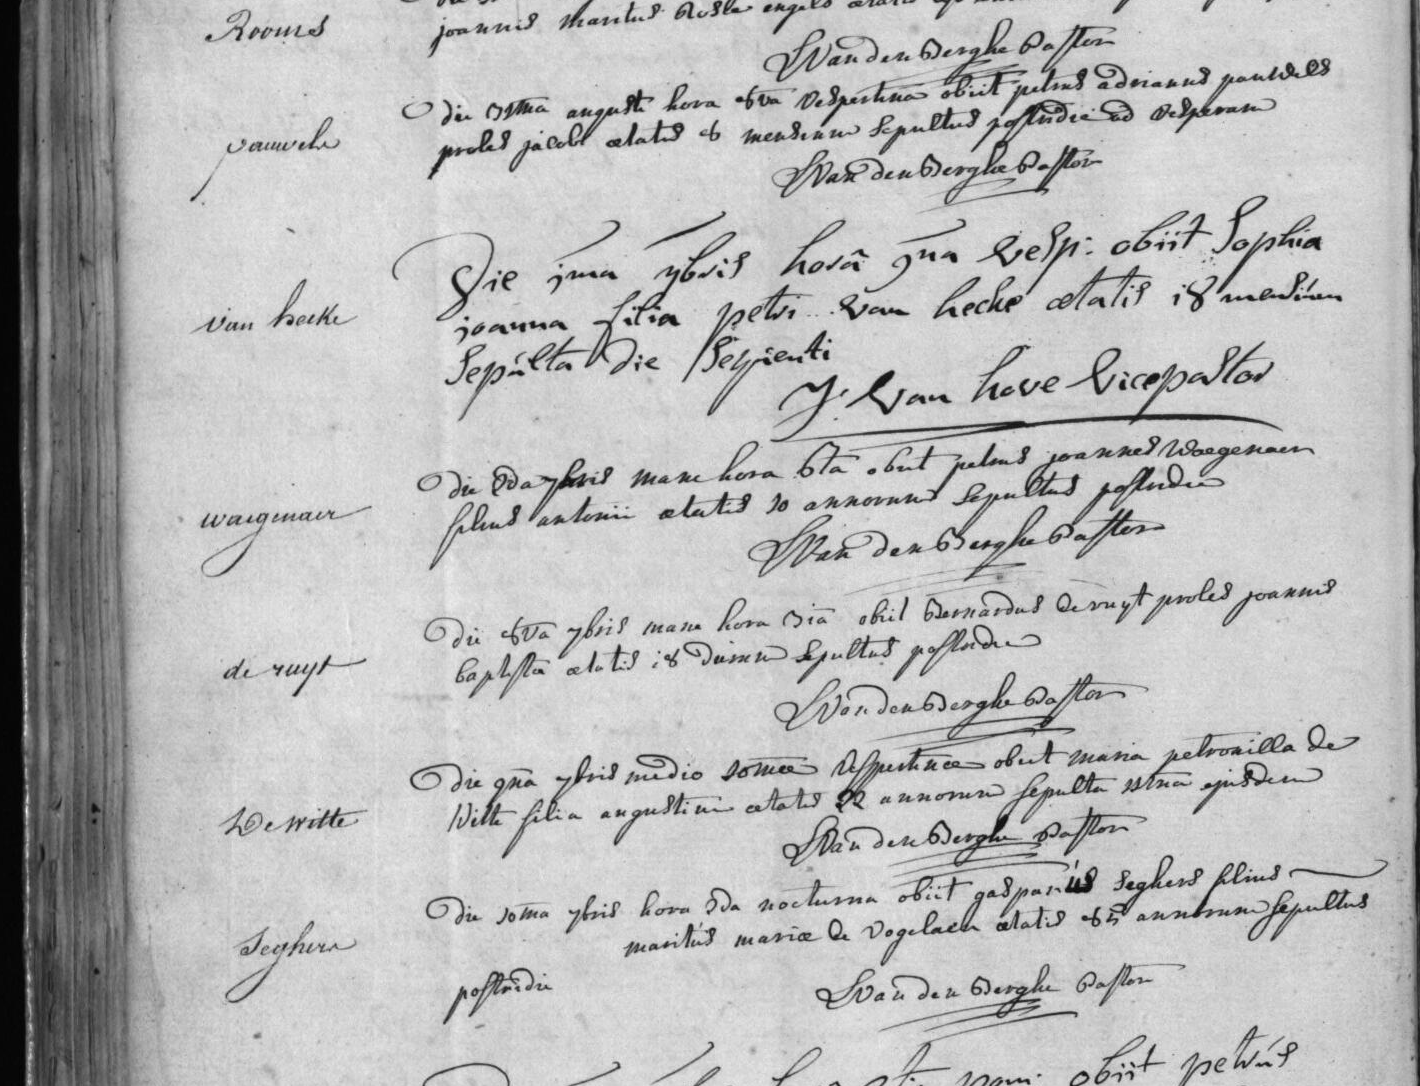 Rooms
joannis maritus Rosae engels aetatis
J Van den Berghe Pastor
pauwels
Die 31ma augusti hora 8va vespertina obiit petrus adrianus pauwels
proles jacobi aetatis 8 mensium sepultus postridie ad vesperam
J Van den Berghe Pastor
van hecke
Die 1ma 7bris horâ vesp: obiit Sophia
joanna filia petri van hecke aetatis 18 mensium
Sepulta die seqúenti
J: Van hove vicepastor
waegenaer
Die 2da 7bris mane hora 6ta obiit petrus joannes Waegenaer
filius antonii aetatis 10 annorum sepultus postridie
J Van den Berghe Pastor
de ruyt
Die 8va 7bris mane hora 3ia obiit Bernardus de ruyt proles joannis
baptista aetatis 18 dierum sepultus postridie
J Van den Berghe Pastor
De witte
Die 9na 7bris medio 10mae vespertinae obiit maria petronilla de
Witte filia augustini aetatis 22 annorum sepulta 11ma ejusdem
J Van den Berghe Pastor
Seghers
Die 10ma 7bris hora 2da nocturna obiit gasparús Seghers filius
maritús mariae de vogelaer aetatis 85 annorum sepultus
postridie
J Van den Berghe Pastor
obiit petrús